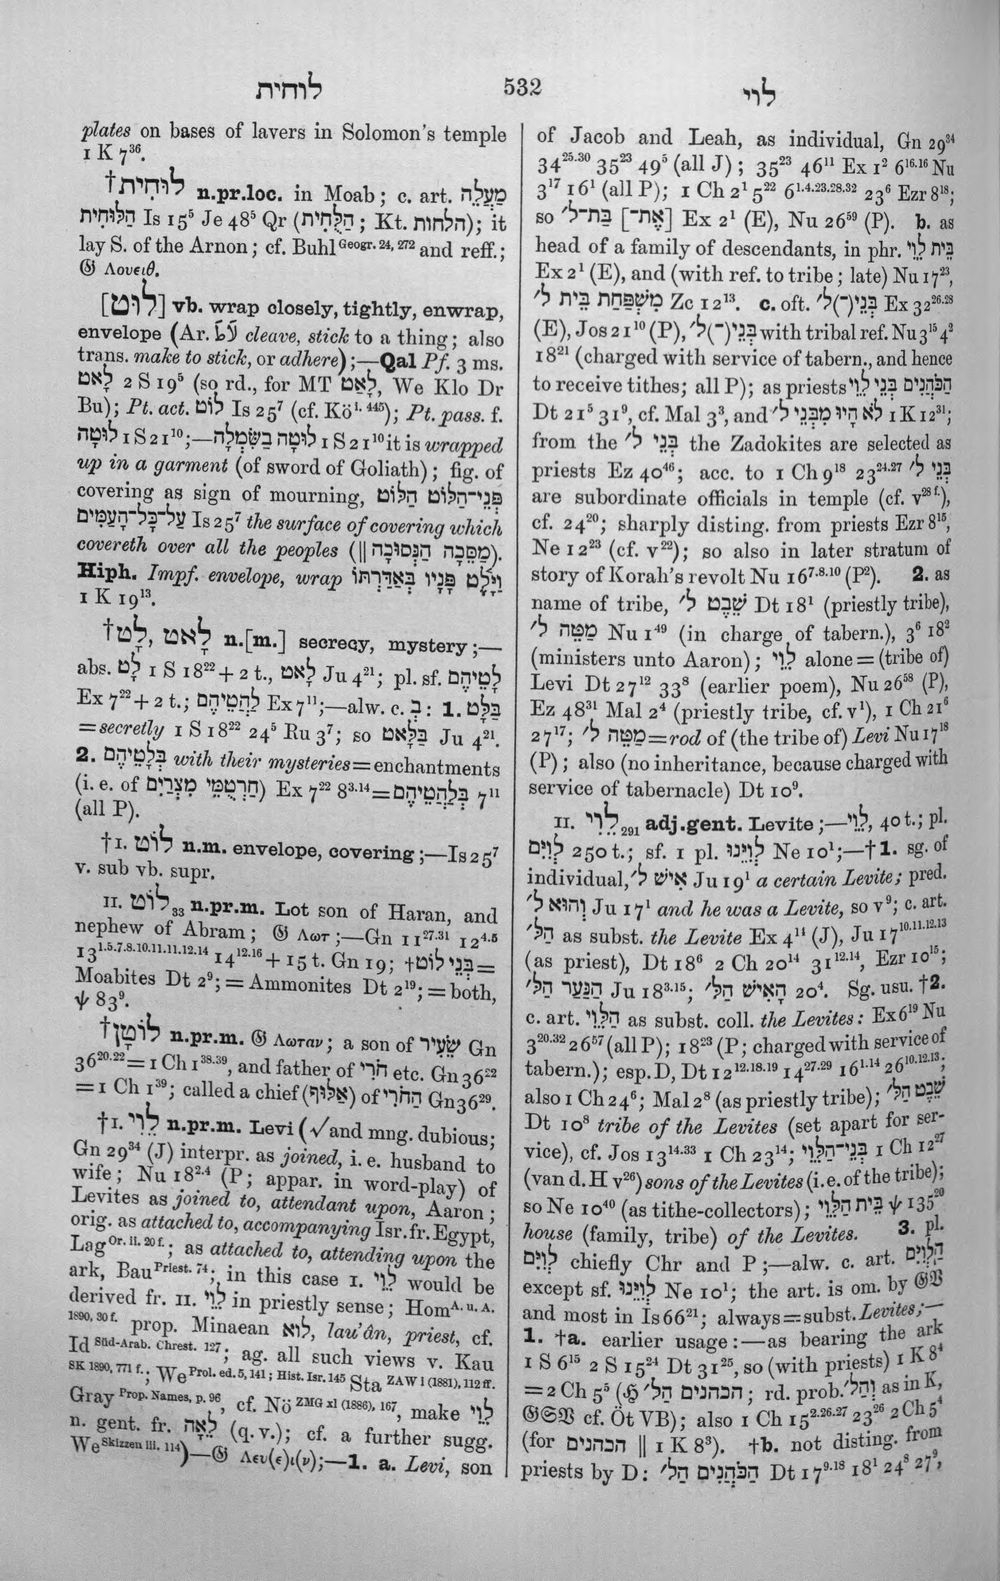 לוחית 532 לוי
plates on bases of lavers in Solomon's temple
1 K 7³⁶.
†לוּחִית n.pr.loc. in Moab; c. art. מַעֲלֵה
הַלּוּחִית Is 15⁵ Je 48⁵ Qr (הַלֻּחִית; Kt. הלחות); it
lay S. of the Arnon; cf. Buhl Geogr. 24, 272 and reff.;
𝔊 Λουειθ.
[לוּט] vb. wrap closely, tightly, enwrap,
envelope (Ar. cleave, stick to a thing; also
trans. make to stick, or adhere);—Qal Pf. 3 ms.
לָאט 2 S 19⁵ (so rd., for MT לָאַט, We Klo Dr
Bu); Pt. act. לוֹט Is 25⁷ (cf. Kö¹· ⁴⁴⁵); Pt. pass. f.
לוּטָה 1 S 21¹⁰;—לוּטָה בַשִּׂמְלָה 1 S 21¹⁰ it is wrapped
up in a garment (of sword of Goliath); fig. of
covering as sign of mourning, פְּנֵי־הַלּוֹט הַלּוֹט
עַל־כָּל־הָעַמִּים Is 25⁷ the surface of covering which
covereth over all the peoples (‖ מַסֵּכָה הַנְּסוּכָה).
Hiph. Impf. envelope, wrap וַיָּלֶט פָּנָיו בְּאַדַּרְתּוֹ
1 K 19¹³.
†לָט, לָאט n.[m.] secrecy, mystery;—
abs. לָט 1 S 18²² + 2 t., לָאט Ju 4²¹; pl. sf. לָטֵיהֶם
Ex 7²² + 2 t.; לַהֲטֵיהֶם Ex 7¹¹;—alw. c. בְּ: 1. בַּלָּט
= secretly 1 S 18²² 24⁵ Ru 3⁷; so בַּלָּאט Ju 4²¹.
2. בְּלָטֵיהֶם with their mysteries = enchantments
(i. e. of חַרְטֻמֵּי מִצְרַיִם) Ex 7²² 8³·¹⁴ = בְּלַהֲטֵיהֶם 7¹¹
(all P).
†I. לוֹט n.m. envelope, covering;—Is 25⁷
v. sub vb. supr.
II. לוֹט₃₃ n.pr.m. Lot son of Haran, and
nephew of Abram; 𝔊 Λωτ;—Gn 11²⁷·³¹ 12⁴·⁵
13¹·⁵·⁷·⁸·¹⁰·¹¹·¹¹·¹²·¹⁴ 14¹²·¹⁶ + 15 t. Gn 19; †בְּנֵי לוֹט =
Moabites Dt 2⁹; = Ammonites Dt 2¹⁹; = both,
ψ 83⁹.
†לוֹטָן n.pr.m. 𝔊 Λωταν; a son of שֵׂעִיר Gn
36²⁰·²² = 1 Ch 1³⁸·³⁹, and father of חֹרִי etc. Gn 36²²
= 1 Ch 1³⁹; called a chief (אַלּוּף) of הַחֹרִי Gn 36²⁹.
†I. לֵוִי n.pr.m. Levi (√ and mng. dubious;
Gn 29³⁴ (J) interpr. as joined, i. e. husband to
wife; Nu 18²·⁴ (P; appar. in word-play) of
Levites as joined to, attendant upon, Aaron;
orig. as attached to, accompanying Isr. fr. Egypt,
Lag Or. ii. 20 f.; as attached to, attending upon the
ark, Bau Priest. 74; in this case I. לֵוִי would be
derived fr. II. לֵוִי in priestly sense; Hom A. u. A.
1890, 30 f. prop. Minaean לוא, lau'ân, priest, cf.
Id Süd-Arab. Chrest. 127; ag. all such views v. Kau
SK 1890, 771 f.; We Prol. ed. 5, 141; Hist. Isr. 145 Sta ZAW i (1881), 112 ff.
Gray Prop. Names, p. 96, cf. Nö ZMG xl (1886), 167, make לֵוִי
n. gent. fr. לֵאָה (q. v.); cf. a further sugg.
We Skizzen iii. 114)—𝔊 Λευ(ε)ι(ν);—1. a. Levi, son
of Jacob and Leah, as individual, Gn 29³⁴
34²⁵·³⁰ 35²³ 49⁵ (all J); 35²³ 46¹¹ Ex 1² 6¹⁶·¹⁶ Nu
3¹⁷ 16¹ (all P); 1 Ch 2¹ 5²² 6¹·⁴·²³·²⁸·³² 23⁶ Ezr 8¹⁸;
so בַּת־ל׳ [אֶת־] Ex 2¹ (E), Nu 26⁵⁹ (P). b. as
head of a family of descendants, in phr. בֵּית לֵוִי
Ex 2¹ (E), and (with ref. to tribe; late) Nu 17²³,
מִשְׁפַּחַת בֵּית ל׳ Zc 12¹³. c. oft. בְּנֵי(־)ל׳ Ex 32²⁶·²⁸
(E), Jos 21¹⁰ (P), בְּנֵי(־)ל׳ with tribal ref. Nu 3¹⁵ 4²
18²¹ (charged with service of tabern., and hence
to receive tithes; all P); as priests הַכֹּהֲנִים בְּנֵי לֵוִי
Dt 21⁵ 31⁹, cf. Mal 3³, and לֹא הָיוּ מִבְּנֵי ל׳ 1 K 12³¹;
from the בְּנֵי ל׳ the Zadokites are selected as
priests Ez 40⁴⁶; acc. to 1 Ch 9¹⁸ 23²⁴·²⁷ בְּנֵי ל׳
are subordinate officials in temple (cf. v²⁸ ᶠ·),
cf. 24²⁰; sharply disting. from priests Ezr 8¹⁵,
Ne 12²³ (cf. v²²); so also in later stratum of
story of Korah's revolt Nu 16⁷·⁸·¹⁰ (P²). 2. as
name of tribe, שֵׁבֶט ל׳ Dt 18¹ (priestly tribe),
מַטֵּה ל׳ Nu 1⁴⁹ (in charge of tabern.), 3⁶ 18²
(ministers unto Aaron); לֵוִי alone = (tribe of)
Levi Dt 27¹² 33⁸ (earlier poem), Nu 26⁵⁸ (P),
Ez 48³¹ Mal 2⁴ (priestly tribe, cf. v¹), 1 Ch 21⁶
27¹⁷; מַטֵּה ל׳ = rod of (the tribe of) Levi Nu 17¹⁸
(P); also (no inheritance, because charged with
service of tabernacle) Dt 10⁹.
II. לֵוִי₂₉₁ adj.gent. Levite;—לֵוִי, 40 t.; pl.
לְוִיִּם 250 t.; sf. 1 pl. לְוִיֵּנוּ Ne 10¹;—†1. sg. of
individual, אִישׁ ל׳ Ju 19¹ a certain Levite; pred.
וְהוּא ל׳ Ju 17¹ and he was a Levite, so v⁹; c. art.
הַל׳ as subst. the Levite Ex 4¹⁴ (J), Ju 17¹⁰·¹¹·¹²·¹³
(as priest), Dt 18⁶ 2 Ch 20¹⁴ 31¹²·¹⁴, Ezr 10¹⁵;
הַנַּעַר הַל׳ Ju 18³·¹⁵; הָאִישׁ הַל׳ 20⁴. Sg. usu. †2.
c. art. הַלֵּוִי as subst. coll. the Levites: Ex 6¹⁹ Nu
3²⁰·³² 26⁵⁷ (all P); 18²³ (P; charged with service of
tabern.); esp. D, Dt 12¹²·¹⁸·¹⁹ 14²⁷·²⁹ 16¹¹·¹⁴ 26¹⁰·¹²·¹³;
also 1 Ch 24⁶; Mal 2⁸ (as priestly tribe); שֵׁבֶט הַל׳
Dt 10⁸ tribe of the Levites (set apart for ser-
vice), cf. Jos 13¹⁴·³³ 1 Ch 23¹⁴; בְּנֵי־הַלֵּוִי 1 Ch 12²⁷
(van d. H v²⁶) sons of the Levites (i.e. of the tribe);
so Ne 10⁴⁰ (as tithe-collectors); בֵּית הַלֵּוִי ψ 135²⁰
house (family, tribe) of the Levites. 3. pl.
לְוִיִּם chiefly Chr and P;—alw. c. art. הַלְוִיִּם
except sf. לְוִיֵּנוּ Ne 10¹; the art. is om. by 𝔊𝔙
and most in Is 66²¹; always = subst. Levites;—
1. †a. earlier usage:—as bearing the ark
1 S 6¹⁵ 2 S 15²⁴ Dt 31²⁵, so (with priests) 1 K 8⁴
= 2 Ch 5⁵ (ℌ הכהנים הַל׳; rd. prob. וְהַל׳ as in K,
𝔊𝔖𝔙 cf. Öt VB); also 1 Ch 15²·²⁶·²⁷ 23²⁶ 2 Ch 5⁴
(for הכהנים ‖ 1 K 8³). †b. not disting. from
priests by D: הַכֹּהֲנִים הַל׳ Dt 17⁹·¹⁸ 18¹ 24⁸ 27⁹,